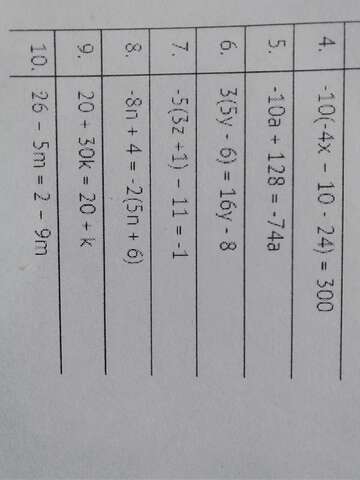 4. -10(-4x - 10 - 24) = 300
5. -10a + 128 = -74a
6. 3(5y - 6) = 16y - 8
7. -5(3z +1) - 11 = -1
8. -8n + 4 = -2(5n + 6)
9. 20 + 30k = 20 + k
10. 26 - 5m = 2 - 9m